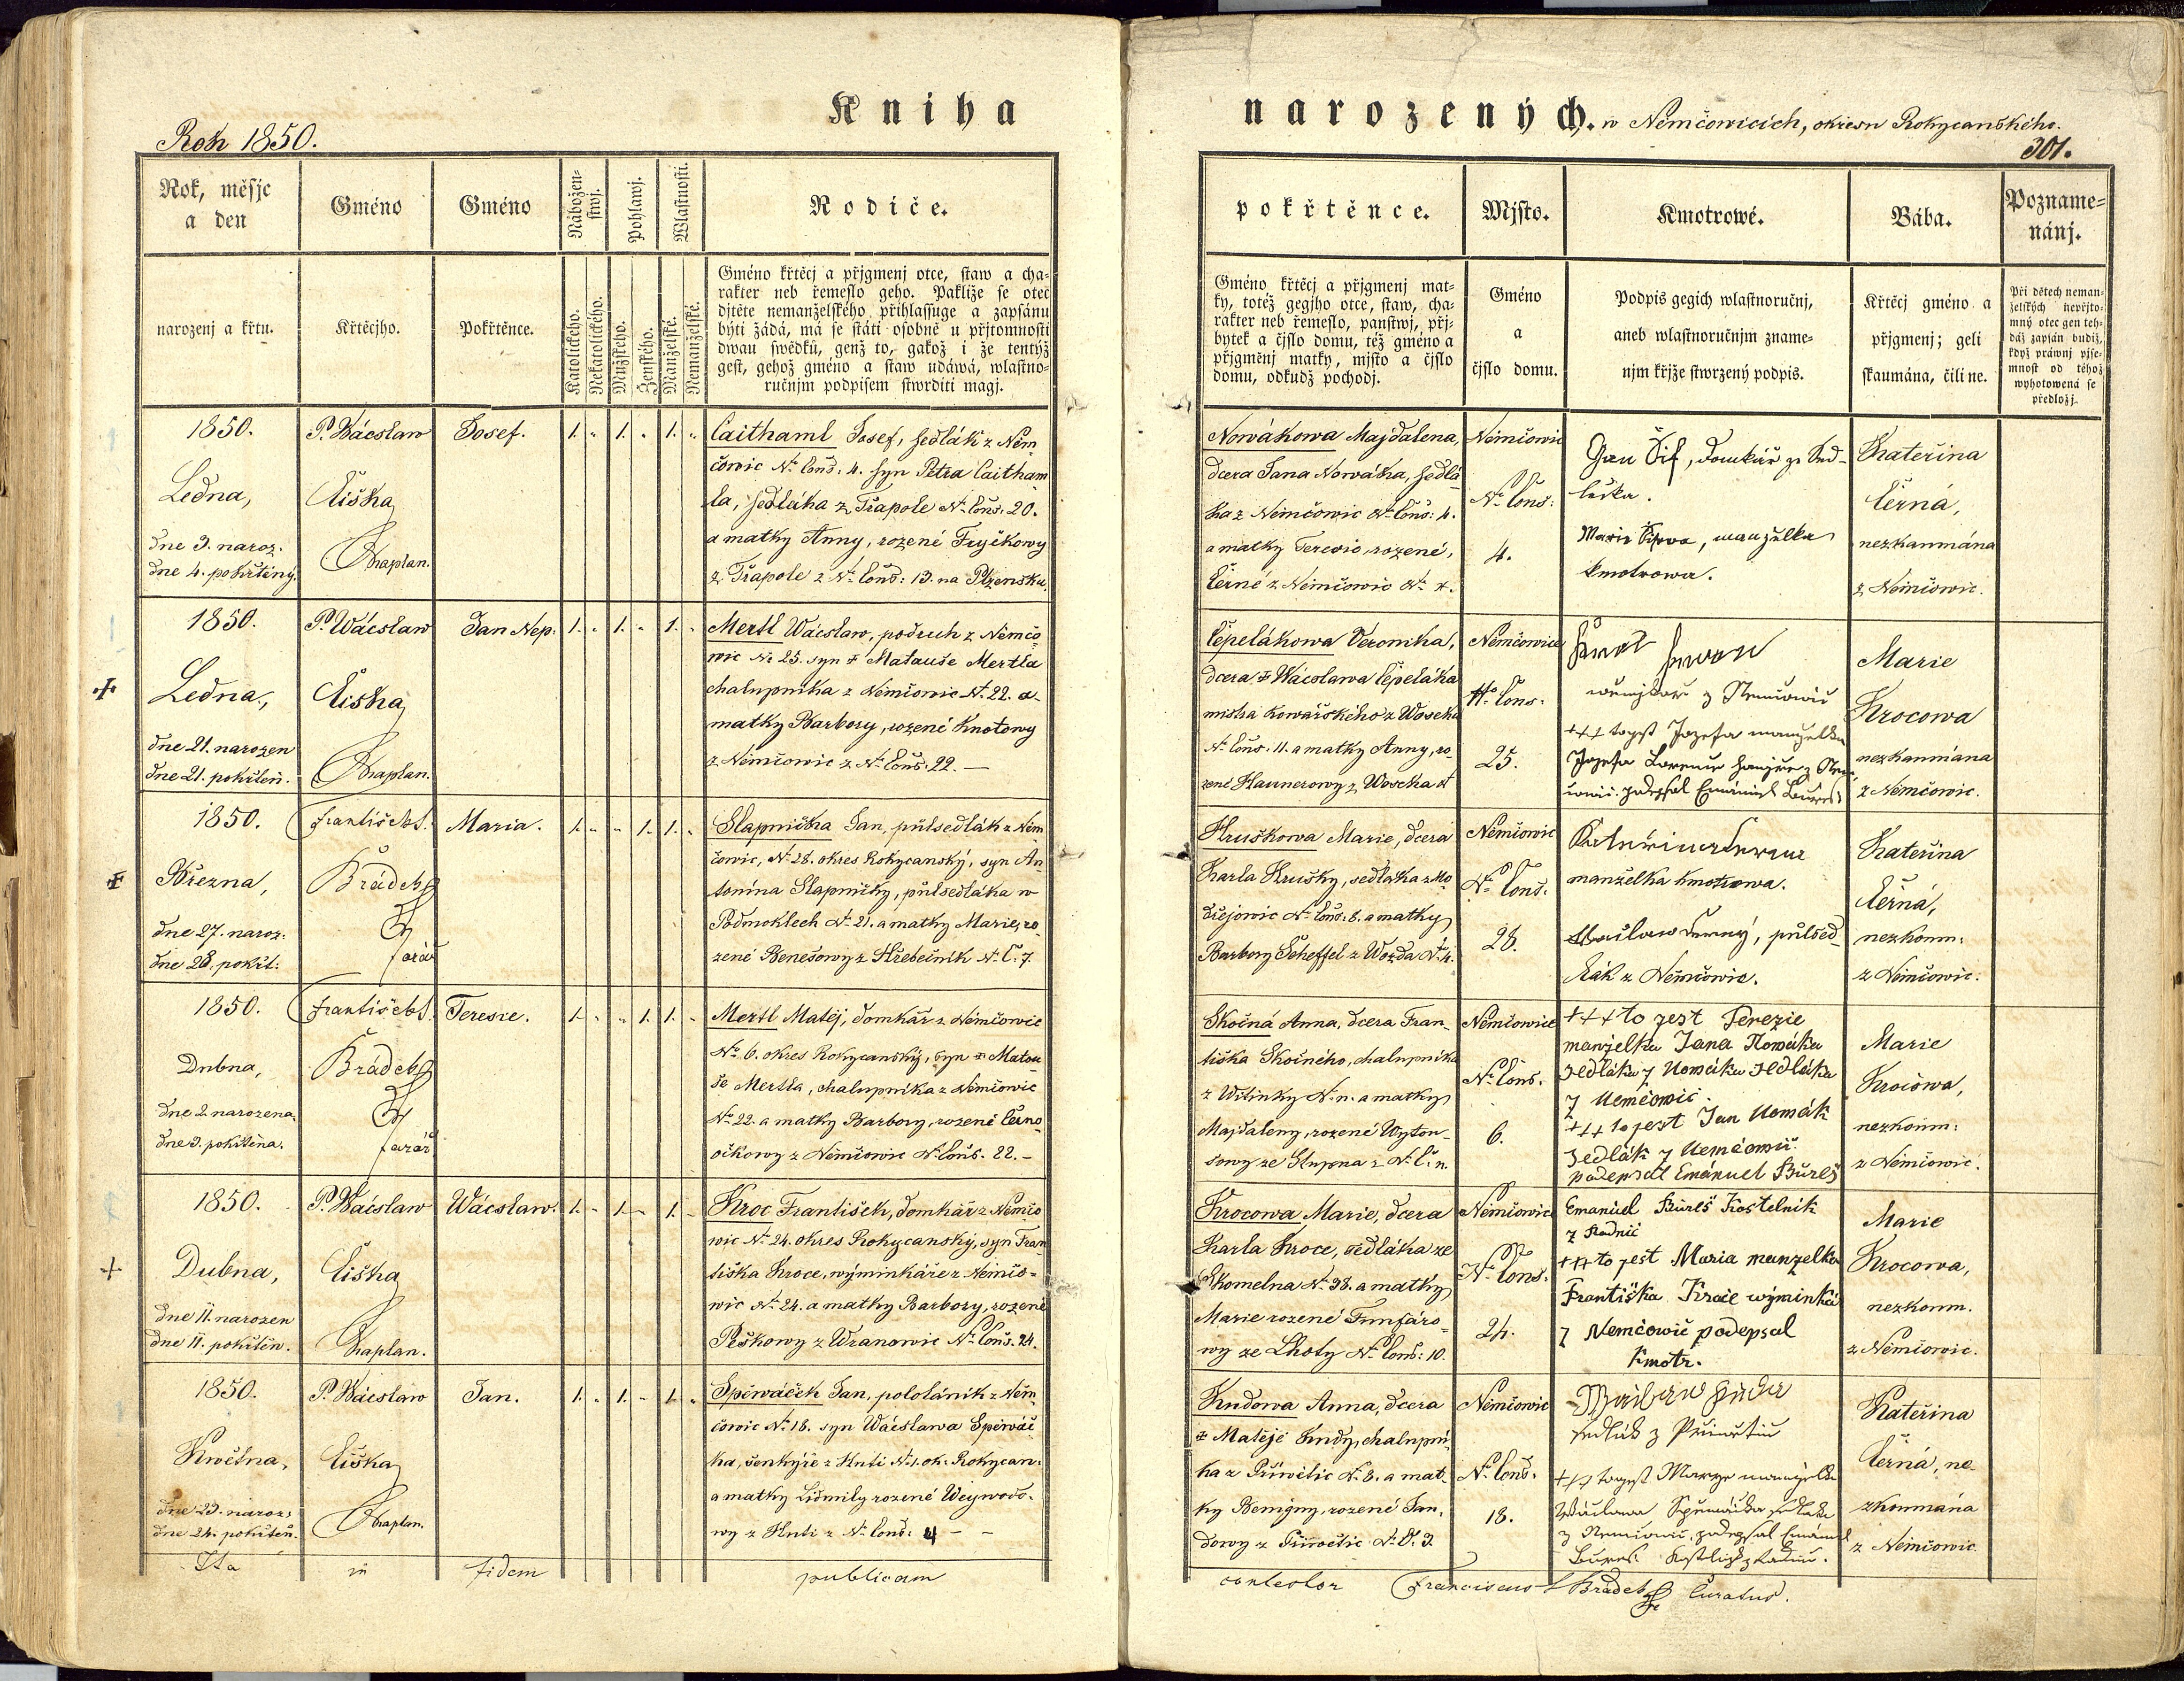 Kniha
narozených. w Němčowicích, okresu Rokycanského.
Rok 1850.
301.
Rok, měsjc
a den
Gméno
Gméno
Nábožen-
stwj.
Pohlawj.
Wlastnosti.
Rodiče.
narozenj a křtu.
Křtěcjho.
Pokřtěnce.
Katolického.
Nekatolického.
Mužského.
Ženského.
Manželské.
Nemanželské.
Gméno křtěcj a přjgmenj otce, staw a cha-
rakter neb řemeslo geho. Pakliže se otec
djtěte nemanželského přihlassuge a zapsánu
býti žádá, má se státi osobně u přjtomnosti
dwau swědků, genž to, gakož i že tentýž
gest, gehož gméno a staw udáwá, wlastno-
ručnjm podpisem stwrditi magj.
pokřtěnce.
Mjsto.
Kmotrowé.
Bába.
Pozname-
nánj.
Gméno křtěcj a přjgmenj mat-
ky, totéž gegjho otce, staw, cha-
rakter neb řemeslo, panstwj, přj-
bytek a čjslo domu, též gméno a
přjgmenj matky, mjsto a čjslo
domu, odkudž pocházj.
Gméno
a
čjslo domu.
Podpis gegich wlastnoručnj,
aneb wlastnoručnjm zname-
njm křjže stwrzený podpis.
Křtěcj gméno a
přjgmenj; geli
skaumána, čili ne.
Při dětech neman-
želských nepřjto-
mný otec gen teh-
dáž zapsán budiž,
když práwnj pjse-
mnost od téhož
wyhotowená se
předložj.
1850.
Ledna,
dne 3. naroz.
dne 4. pokřtěný.
P. Wácslaw
Čiška
Kaplan.
Josef.
1. „ 1. „ 1. „
Caithaml Josef, sedlák z Něm
čowic No Cons: 4. syn Petra Caitham
la, sedláka z Třapole No Cons: 20.
a matky Anny, rozené Fryčkowy
z Třapole z No Cons: 13. na Plzensku.
Nowákowa Majdalena,
dcera Jana Nowáka, sedlá
ka z Němčowic No Cons: 4.
a matky Teresie, rozené,
Černé z Němčowic No 4.
Němčowic
No Cons:
4.
Gan Šif, domkář ze Sed-
lecka.
Marie Šifowa, manželka
kmotrowa.
Kateřina
Černá,
nezkaumána
z Němčowic.
1850.
Ledna,
dne 21. narozen
dne 21. pokřtěn.
P. Wácslaw
Čiška
Kaplan.
Jan Nep:
1. „ 1. „ 1. „
Mertl Wácslaw, podruh z Němčo
wic No 25. syn + Matauše Mertla
chalupníka z Němčowic No 22. a
matky Barbory, rozené Knotowy
z Němčowic z No Cons: 22. —
Čepelákowa Veronika,
dcera + Wácslawa Čepeláka
mistra kowářského z Woseka
No Cons. 11. a matky Anny, ro
zené Haunerowy z Woseka
Němčowice
No Cons.
25.
z Němčowic
+++ togest Jozefa manželka
Marie
Krocowa
nezkaumána
z Němčowic.
1850.
Března,
dne 27. naroz:
dne 28. pokřt:
František S.
Brádek
farář
Maria.
1. „ „ 1. 1. „
Slapnička Jan, půlsedlák z Něm
čowic, No 28. okres Rokycanský, syn An
tonína Slapničky, půlsedláka w
Podmoklech No 21. a matky Marie, ro
zené Benešowy z Střebečník No C. 7.
Hruškowa Marie, dcera
Karla Hrušky, sedláka z Mo
dřejowic No Cons: 8. a matky
Barbory Scheffel z Wozda No 4.
Němčowic
No Cons.
28.
manželka kmotrowa.
Wacslaw Černý, půlsed
lák z Němčowic.
Kateřina
Černá,
nezkoum:
z Němčowic.
1850.
Dubna,
dne 2. narozena.
dne 3. pokřtěna.
František S.
Brádek
farář
Teresie.
1. „ „ 1. 1. „
Mertl Matěj, domkář z Němčowic
No 6. okres Rokycanský, syn + Matou
še Mertla, chalupníka z Němčowic
No 22. a matky Barbory, rozené Černo
očkowy z Němčowic No Cons. 22. –
Skočná Anna, dcera Fran
tiška Skočného, chalupníka
z Witinky No n. a matky
Majdaleny, rozené Wyton
sowy ze Stupna z No C. n.
Němčowice
No Cons.
6.
+++ to jest Terezie
manzelka Jana Nowáka
Sedláka z Nemčowic.
+++ to jest Jan Nowák
Sedlák z Nemčowic
podepsal Emánuel Bureš
Marie
Krocowa,
nezkoum:
z Němčowic.
1850.
Dubna,
dne 11. narozen
dne 11. pokřtěn.
P. Wácslaw
Čiška
Kaplan.
Wácslaw.
1. – 1. – 1. –
Kroc František, domkář z Němčo
wic No 24. okres Rokycanský, syn Fran
tiška Kroce, wýminkáře z Němčo-
wic No 24. a matky Barbory, rozené
Peškowy z Wranowic No Cons. 24.
Krocowa Marie, dcera
Karla Kroce, sedláka ze
Skomelna No 38. a matky
Marie rozené Funfáro
wy ze Lhoty No Cons: 10.
Němčowic
No Cons.
24.
Emanuel Bureš Kostelník
z Radnic
+++ to jest Maria manzelka
Františka Kroce wýminká
z Nemčowic podepsal
Kmotr.
Marie
Krocowa,
nezkoum.
z Němčowic.
1850.
Kwětna,
dne 23. naroz:
dne 24. pokřtěn.
P. Wácslaw
Čiška
Kaplan.
Jan.
1. „ 1. „ 1. „
Spěwáček Jan, pololánik z Něm
čowic No 18. syn Wácslawa Spěwáč
ka, šenkýře z Hutí No 1. ok. Rokycan:
a matky Lidmily rozené Weywodo-
wy z Hutí z No Cons: 4 – –
Kudowa Anna, dcera
+ Matěje Kudy, chalupní
ka z Přiwětic No 8. a mat
ky Benigny, rozené Jan
dowy z Přiwětic No D. 3.
Němčowic
No Cons.
18.
sedlák z Přiwětic
+++ togest Marye manzelka
Wáclawa Spěwačka sedláka
z Nemčowic, podepsal Emanuel
Bureš
Kateřina
Černá, ne
zkoumána
z Němčowic.
Ita in fidem publicam
contestor Franciscus S Bradek Curatus.